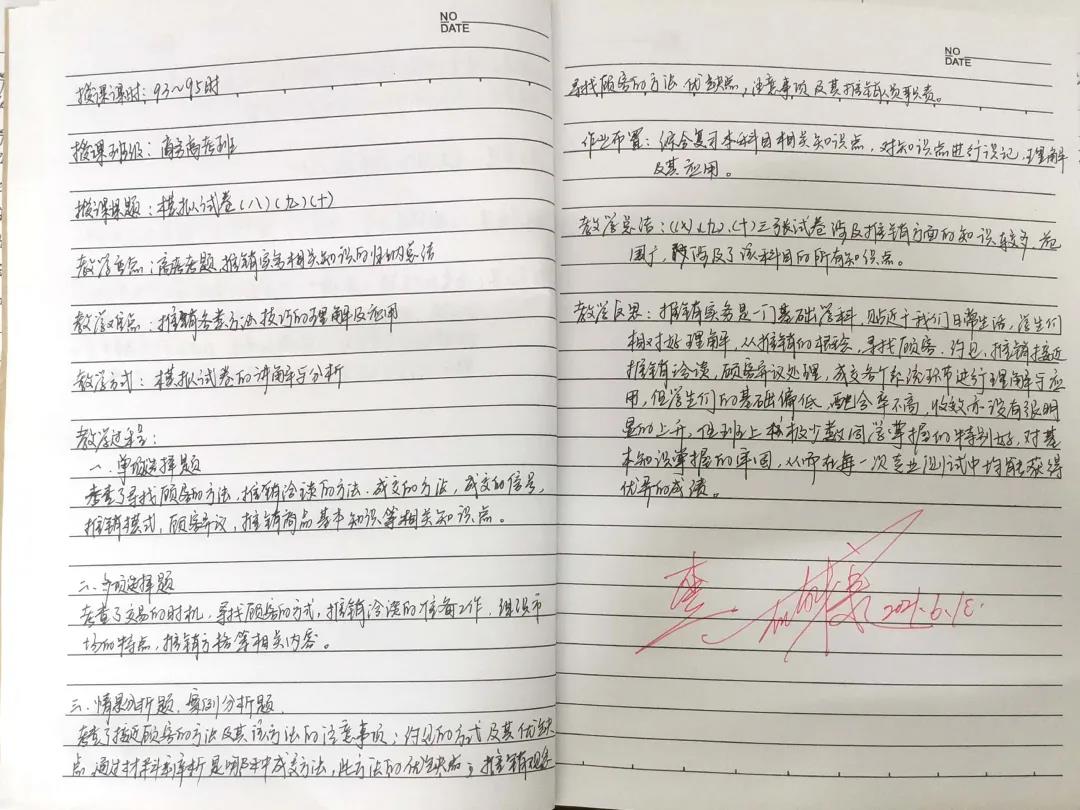 NO
DATE
授课课时：93～95时
授课班级：商务高考班
授课课题：模拟试卷（八）（九）（十）
教学重点：高考考题，推销实务相关知识的归纳总结
教学难点：推销各类方法技巧的理解及应用
教学方式：模拟试卷的讲解与分析
教学过程：
一、单项选择题
考查了寻找顾客的方法，推销洽谈的方法，成交的方法，成交的信号，
推销模式，顾客异议，推销商品基本知识等相关知识点。
二、多项选择题
考查了交易的时机，寻找顾客的方式，推销洽谈的准备工作，组织市
场的特点，推销方格等相关内容。
三、情景分析题、案例分析题
考查了接近顾客的方法及其该方法的注意事项；约见的方式及其优缺
点，通过材料分析是哪种成交方法，此方法的优缺点；推销观念
NO
DATE
寻找顾客的方法 优缺点，注意事项及其推销人员职责。
作业布置：综合复习本科目相关知识点，对知识点进行识记、理解
及其应用。
教学总结：（八）、（九）、（十）三张试卷涉及推销方面的知识较多，范
围广，涉及了该科目的所有知识点。
教学反思：推销实务是一门基础学科，贴近于我们日常生活，学生们
相对好理解，从推销的概念，寻找顾客，约见，推销接近
推销洽谈，顾客异议处理，成交各个系统环节进行理解与应
用，但学生们的基础偏低，配合率不高，收效亦没有很明
显的上升，但班上极少数同学掌握的特别好，对基
本知识掌握的牢固，从而在每一次专业测试中均能获得
优异的成绩。
2021.6.18.